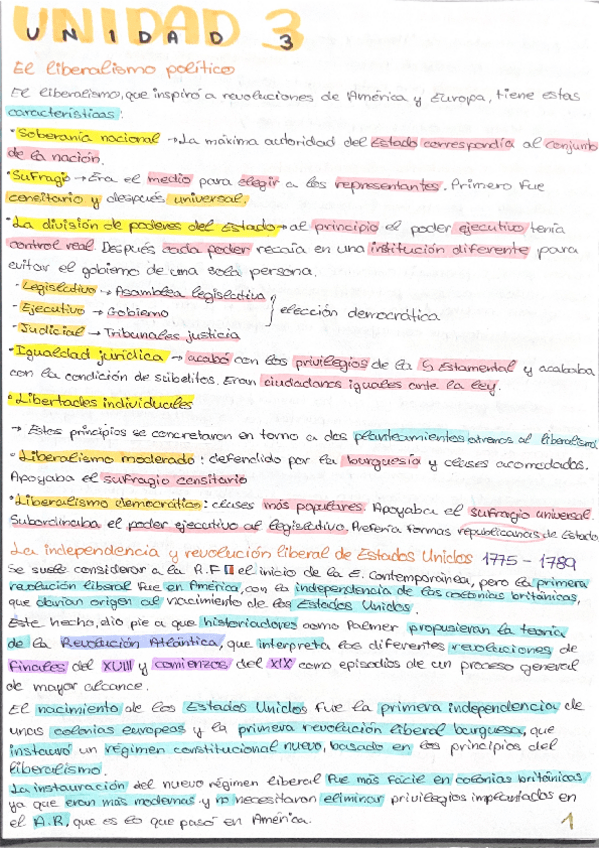 UNIDAD 3
UNIDAD 3
El liberalismo político
El liberalismo, que inspiró a revoluciones de América y Europa, tiene estas
características:
• Soberanía nacional → La máxima autoridad del Estado correspondía al conjunto
de la nación.
• Sufragio → Era el medio para elegir a los representantes. Primero fue
censitario y después universal.
• La división de poderes del Estado → al principio el poder ejecutivo tenía
control real. Después cada poder recaía en una institución diferente para
evitar el gobierno de una sola persona.
- Legislativo → Asamblea legislativa
- Ejecutivo → Gobierno } elección democrática
- Judicial → Tribunales justicia
• Igualdad jurídica → acabó con los privilegios de la S Estamental y acababa
con la condición de súbditos. Eran ciudadanos iguales ante la ley.
• Libertades individuales
→ Estos principios se concretaron en torno a dos planteamientos al liberalismo
• Liberalismo moderado: defendido por la burguesía y clases acomodadas.
Apoyaba el sufragio censitario
• Liberalismo democrático: clases más populares. Apoyaba el sufragio universal.
Subordinaba el poder ejecutivo al legislativo. Prefería formas republicanas de Estado
La independencia y revolución liberal de Estados Unidos 1775 - 1789
Se suele considerar a la R.F el inicio de la E. contemporánea, pero la primera
revolución liberal fue en América, con la independencia de las colonias británicas,
que darían origen al nacimiento de los Estados Unidos.
Este hecho, dio pie a que historiadores como Palmer propusieran la teoría
de la Revolución Atlántica, que interpreta las diferentes revoluciones de
finales del XVIII y comienzos del XIX como episodios de un proceso general
de mayor alcance.
El nacimiento de los Estados Unidos fue la primera independencia de
unas colonias europeas y la primera revolución liberal burguesa, que
instauró un régimen constitucional nuevo, basado en los principios del
liberalismo.
La instauración del nuevo régimen liberal fue más fácil en colonias británicas,
ya que eran más modernas y no necesitaron eliminar privilegios implantados en
el A.R, que es lo que pasó en América.
1